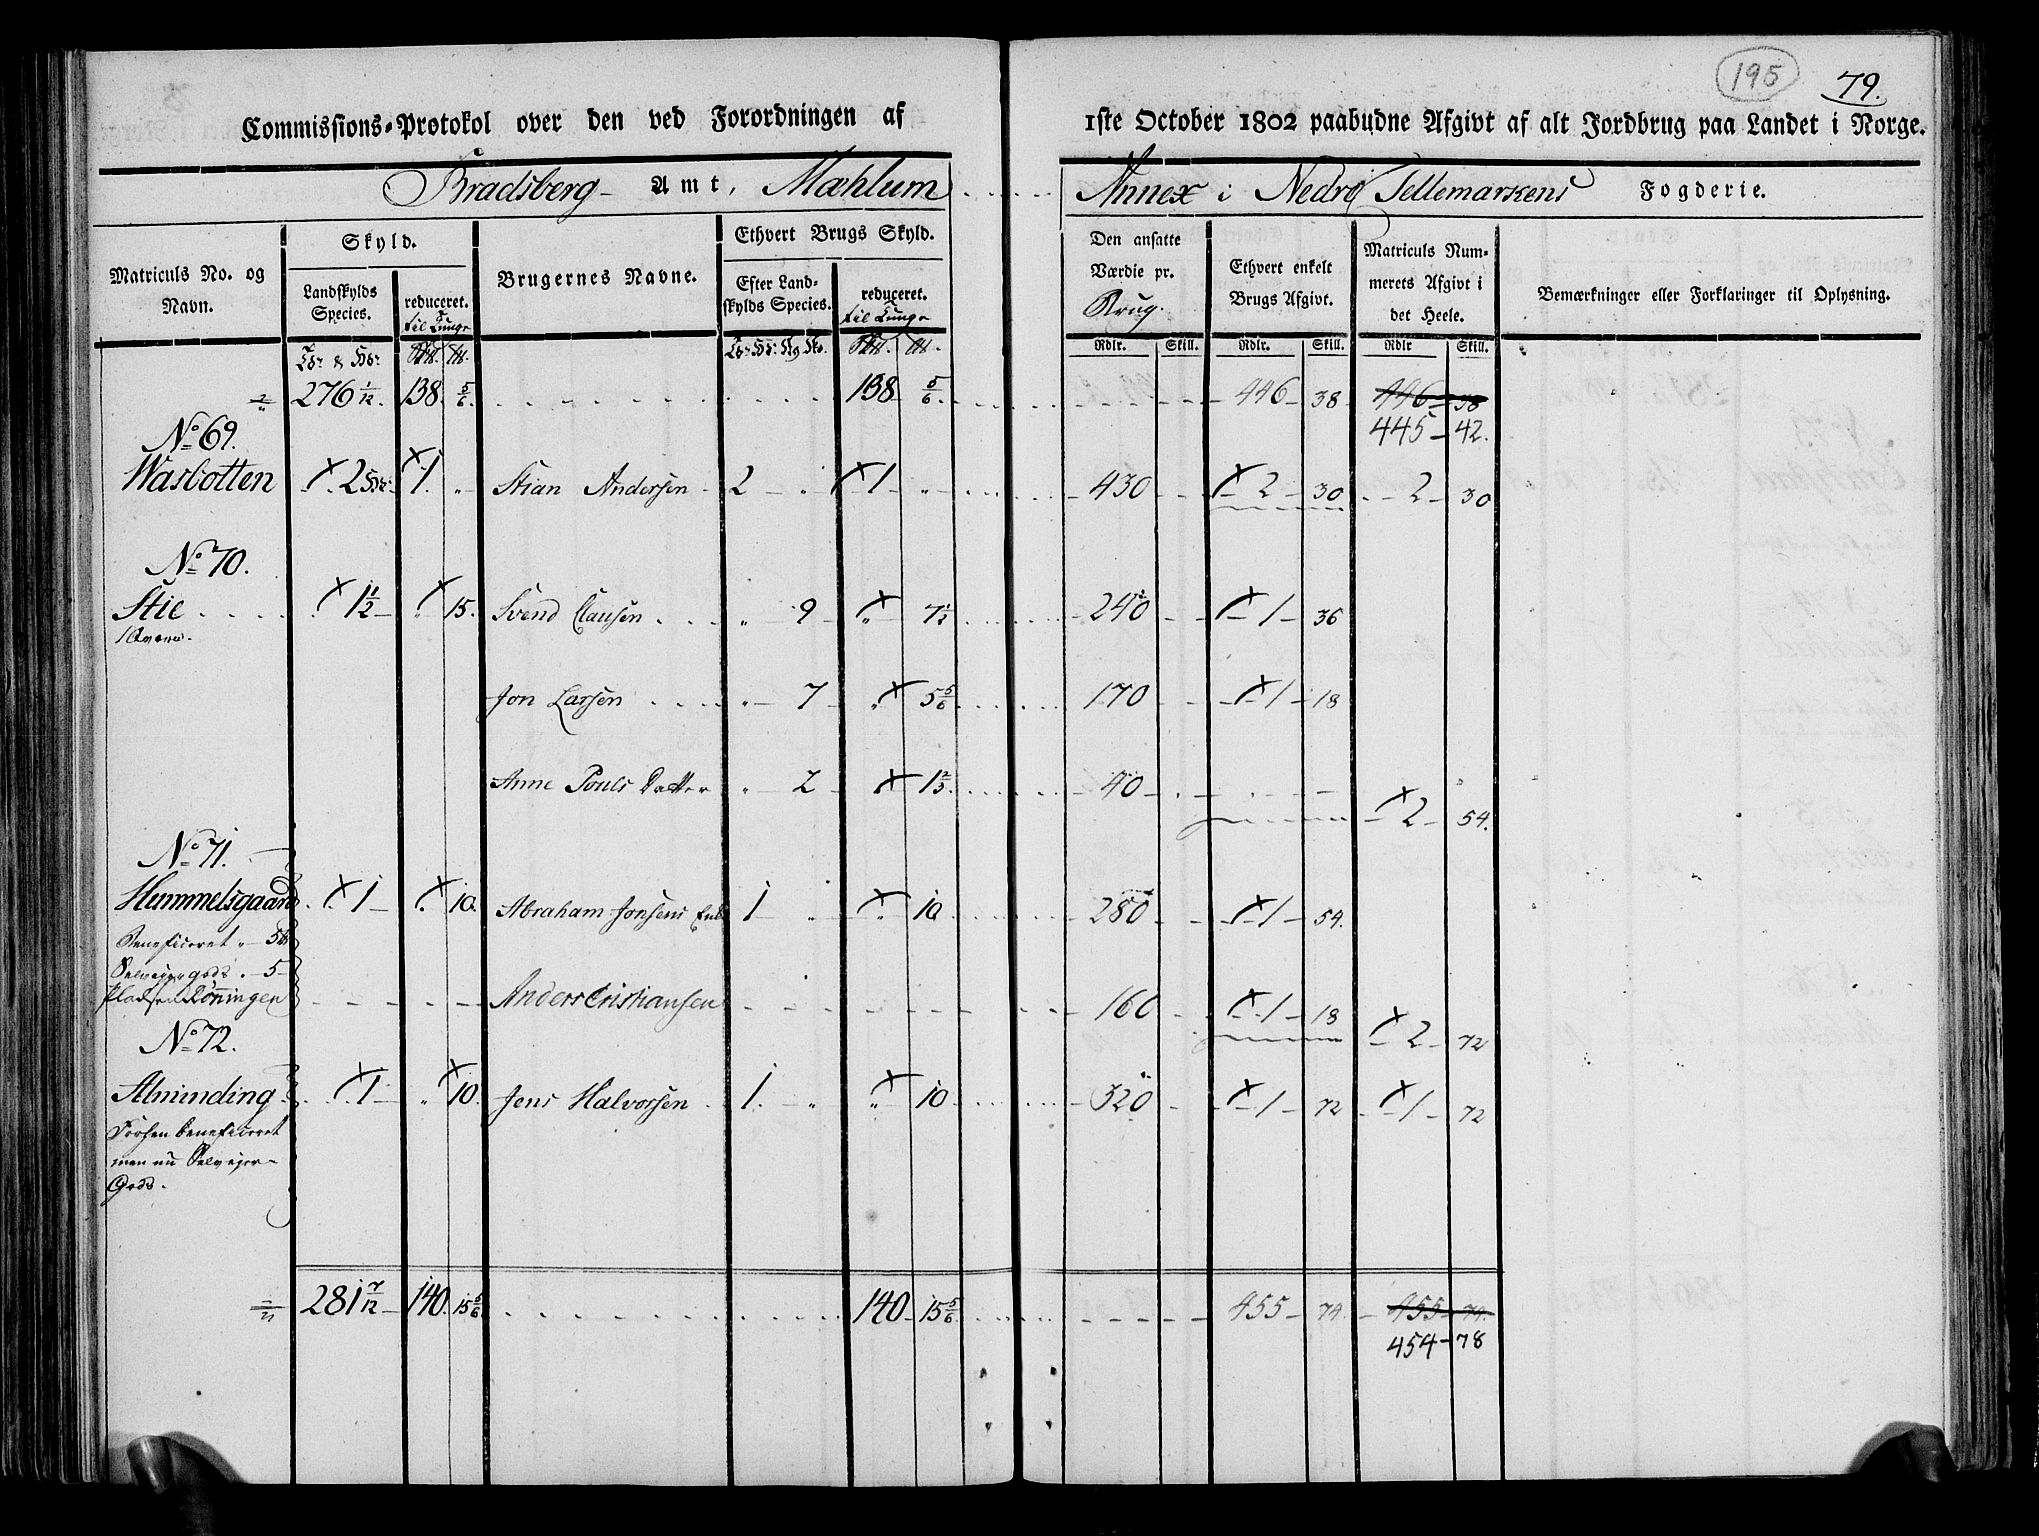 195
79.
Commissions-Protokol over den ved Forordningen af 1ste October 1802 paabudne Afgivt af alt Jordbrug paa Landet i Norge.
Bradsberg Amt, Mæhlum Annex i Nedre Tellemarkens Fogderie.
Matriculs No. og Navn.
Skyld.
Landskylds Species.
reduceret. til Tunge
Brugernes Navne.
Ethvert Brugs Skyld.
Efter Landskylds Species.
reduceret. til Tunge
Den ansatte Værdie pr. Brug.
Ethvert enkelt Brugs Afgivt.
Matriculs Nummerets Afgivt i det Heele.
Bemærkninger eller Forklaringer til Oplysning.
Rdlr. Skill. Rdlr. Skill. Rdlr Skill.
276 1/12 138. 5/6 138 5/6 446 38 446 38
445 42.
No 69.
Wasbotten 2 1 Stian Andersen 2 1 430 2 30 2 30
No 70.
Stie 1 1/2 15. Svend Clausen 9 7 1/2 240 1 36
1 Qværn.
Jon Larsen 7 5 5/6 170 1 18
Anne Pouls Datter 2 1 2/3 40
2 54.
No 71.
Hummelsgaard 1 10. Abraham Jonsens Enke 1 10 280 1 54.
Beneficeret 5
Selveiergods 5
Pladsen Röningen Anders Cristiansen 160 1 18
2 72
No 72.
Alminding 1 10. Jens Halvorsen 1 10 320 1 72 1 72
Forhen beneficeret
men nu Selveier-
Gods.
281 7/12 140. 15 5/6 140 15 5/6 455 74 455 74.
454 78